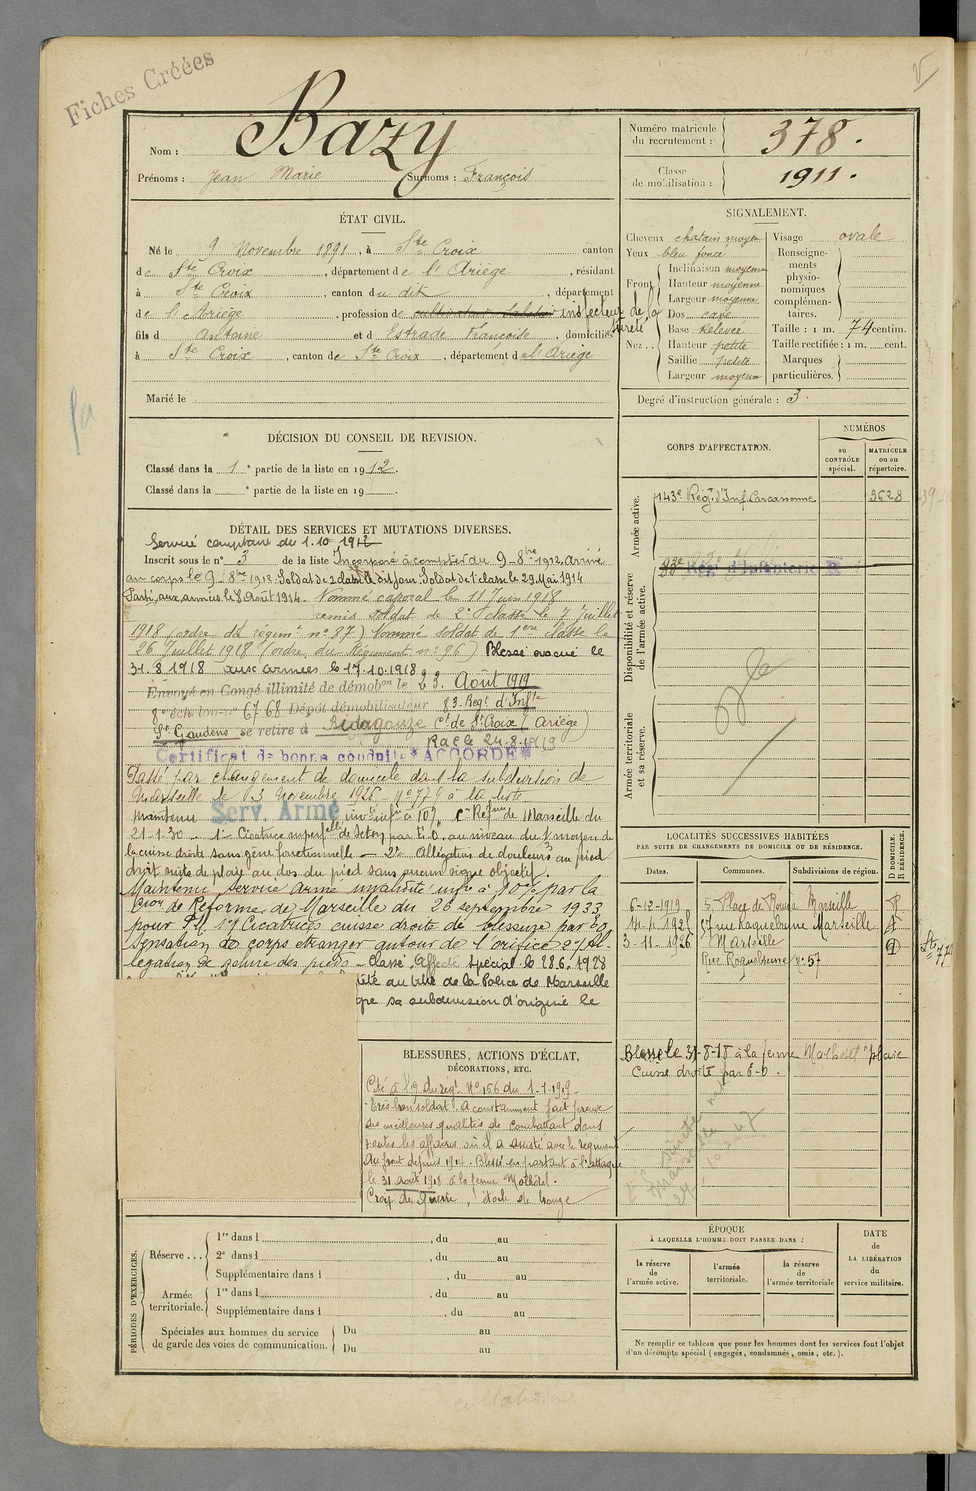 Fiches Créées
Nom : Bazy
Prénoms : Jean Marie Surnoms : François
Numéro matricule du recrutement : 378.
Classe de mobilisation : 1911.
ÉTAT CIVIL.
Né le 9 Novembre 1891, à Ste Croix canton
de Ste Croix, département de l'Ariège, résidant
à Ste Croix, canton du dit, département
de l'Ariège, profession de inspecteur de la Sûreté
fils d Antoine et d Estrade Françoise, domiciliés
à Ste Croix, canton de Ste Croix, département de l'Ariège
Marié le
SIGNALEMENT.
Cheveux chatain moyen
Yeux bleu foncé
Front Inclinaison moyenne
Hauteur moyenne
Largeur moyenne
Nez Dos cave
Base Relevée
Hauteur petite
Saillie petite
Largeur moyenne
Visage ovale
Renseignements physionomiques complémentaires.
Taille : 1 m. 74 centim.
Taille rectifiée : 1 m. cent.
Marques particulières.
Degré d'instruction générale : 3.
DÉCISION DU CONSEIL DE REVISION.
Classé dans la 1e partie de la liste en 1912.
Classé dans la e partie de la liste en 19
CORPS D'AFFECTATION.
NUMÉROS
au CONTRÔLE spécial.
MATRICULE ou au répertoire.
Armée active.
143e Regt d'Inf. Carcassonne 3628
Disponibilité et réserve de l'armée active.
Regt d'Infanterie
Armée territoriale et sa réserve.
DÉTAIL DES SERVICES ET MUTATIONS DIVERSES.
Service comptant du 1.10.1912
Inscrit sous le n° 3 de la liste Incorporé à compter du 9-8bre 1912. Arrivé
au corps le 9-8bre 1912. Soldat de 2 classe dit jour. Soldat de 1e classe le 29 Mai 1914
Parti aux armées le 8 Août 1914. Nommé caporal le 11 Juin 1918
remis soldat de 2e classe le 7 juillet
1918 (ordre du régimt n° 87) Nommé soldat de 1ere classe le
26 Juillet 1918 (ordre du Régiment n° 96) Blessé évacué le
31.8.1918 aux armées le 17.10.1918
Envoyé en Congé illimité de démobon le 23 Août 1919
8e échelon n° 6768 Dépôt démobilisateur 83. Regt d'Infie
St Gaudens se retire à Bidagouze Cn de Ste Croix (Ariège)
Rac le 24.8.1919
Certificat de bonne conduite *ACCORDÉ*
Passé par changement de domicile dans la subdivision de
Marseille le 3 Novembre 1926 N° 779 à la liste
Maintenu Serv. Armé invté infre à 10% Con Refme de Marseille du
21-1-30 - 1° Cicatrice superfelle de séton par E.O. au niveau du 1/3 moyen de
la cuisse droite sans gêne fonctionnelle - 2° Allégation de douleurs au pied
droit suite de plaie au dos du pied sans aucun signe objectif.
Maintenu service armé invalidité infre à 10% par la
Cion de Réforme de Marseille du 26 septembre 1933
pour 1°/ Cicatrices cuisse droite de blessure par
Sensation de corps étranger autour de l'orifice 2°/ Al-
légation de gêne des pieds - Classé Affecté Spécial le 28.6.1928
au titre de la Police de Marseille
sa subdivision d'origine le
LOCALITÉS SUCCESSIVES HABITÉES
PAR SUITE DE CHANGEMENTS DE DOMICILE OU DE RÉSIDENCE.
Dates. Communes. Subdivisions de région. D DOMICILE. R RÉSIDENCE.
6-12-1919 5 Place de Marseille R
1925 57 rue Roquebrune Marseille
3-11-1926 Marseille D
Rue Roquebrune n° 57
Blessé le 31-8-18 à la ferme Malhotel plaie
cuisse droite par E-O.
BLESSURES, ACTIONS D'ÉCLAT,
DÉCORATIONS, ETC.
Cité à l'O du régt N° 156 du 1-1-1919
"Très bon soldat. A constamment fait preuve
des meilleures qualités de combattant dans
toutes les affaires où il a assisté avec le régiment
Au front depuis 1914. Blessé en partant à l'attaque
le 31 août 1918 à la ferme Mothotel.
Croix de guerre, étoile de bronze
PÉRIODES D'EXERCICES.
Réserve 1re dans l , du au
2e dans l , du au
Supplémentaire dans l , du au
Armée territoriale. 1re dans l , du au
Supplémentaire dans l , du au
Spéciales aux hommes du service de garde des voies de communication. Du au
Du au
ÉPOQUE
À LAQUELLE L'HOMME DOIT PASSER DANS :
la réserve de l'armée active.
l'armée territoriale.
la réserve de l'armée territoriale
DATE de LA LIBÉRATION du service militaire.
Ne remplir ce tableau que pour les hommes dont les services font l'objet
d'un décompte spécial (engagés, condamnés, omis, etc.).